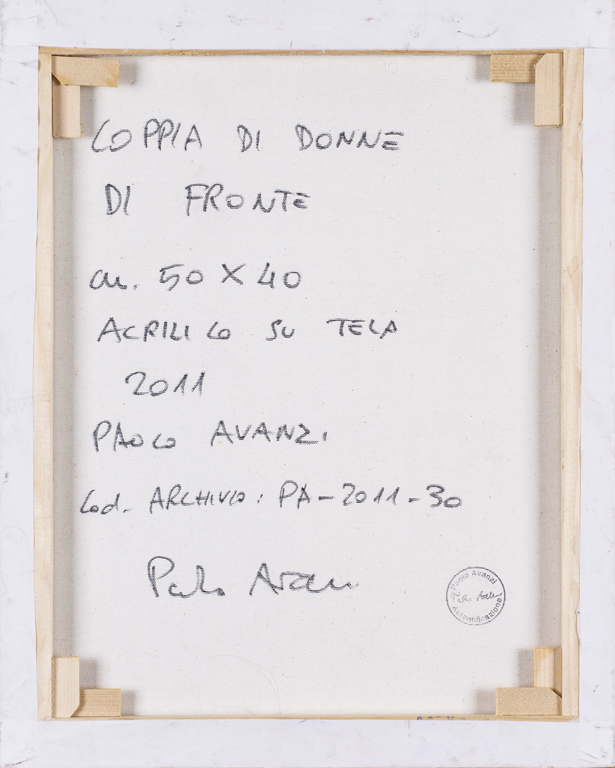 COPPIA DI DONNE
DI FRONTE
cm. 50 X 40
ACRILICO SU TELA
2011
PAOLO AVANZI
Cod. ARCHIVIO: PA-2011-30
Paolo Avanzi
Paolo Avanzi
Autentificazione